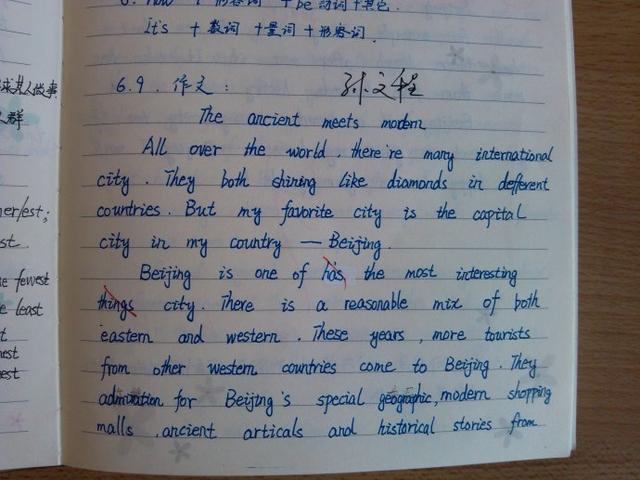 6. How + 形容词 + be 动词 + 其它.
It's + 数词 + 量词 + 形容词.
求某人做事
人群
6.9. 作文: 孙文程
The ancient meets modern
All over the world, there're many international
city. They both shining like diamonds in defferent
ner/est;
countries. But my favorite city is the capital
st.
city in my country — Beijing.
Beijing is one of has the most interesting
e fewest
things city. There is a reasonable mix of both
e least
eastern and western. These years, more tourists
t
nest
from other western countries come to Beijing. They
est
admiration for Beijing's special geographic, modern shopping
malls, ancient articals and historical stories from